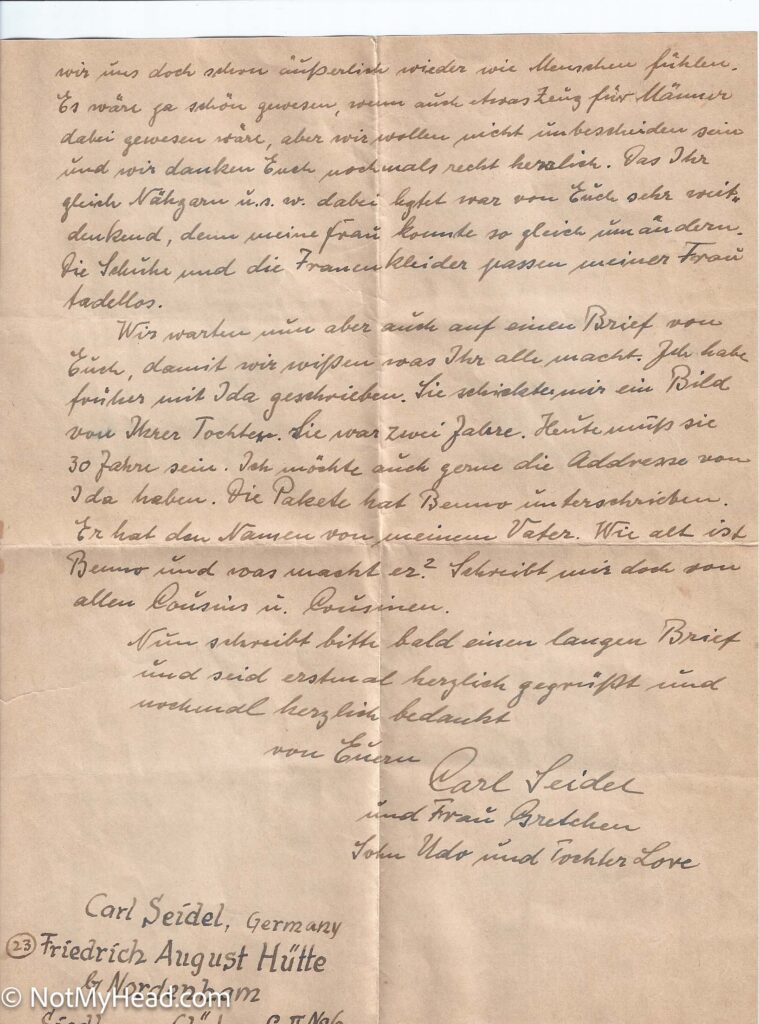 wir uns doch schon äußerlich wieder wie Menschen fühlen.
Es wäre ja schön gewesen, wenn auch etwas Zeug für Männer
dabei gewesen wäre, aber wir wollen nicht unbescheiden sein
und wir danken Euch nochmals recht herzlich. Das Ihr
gleich Nähgarn u.s.w. dabei legtet war von Euch sehr weit-
denkend, denn meine Frau konnte so gleich umändern.
Die Schuhe und die Frauenkleider passen meiner Frau
tadellos.
Wir warten nun aber auch auf einen Brief von
Euch, damit wir wißen was Ihr alle macht. Ich habe
früher mit Ida geschrieben. Sie schickte mir ein Bild
von Ihrer Tochter. Sie war zwei Jahre. Heute muß sie
30 Jahre sein. Ich möchte auch gerne die Addresse von
Ida haben. Die Pakete hat Benno unterschrieben.
Er hat den Namen von meinem Vater. Wie alt ist
Benno und was macht er? Schreibt mir doch von
allen Cousins u. Cousinen.
Nun schreibt bitte bald einen langen Brief
und seid erstmal herzlich gegrüßt und
nochmal herzlich bedankt
von Euern
Carl Seidel
und Frau Gretchen
Sohn Udo und Tochter Lore
Carl Seidel, Germany
23 Friedrich August Hütte
b/ Nordenham
© NotMyHead.com